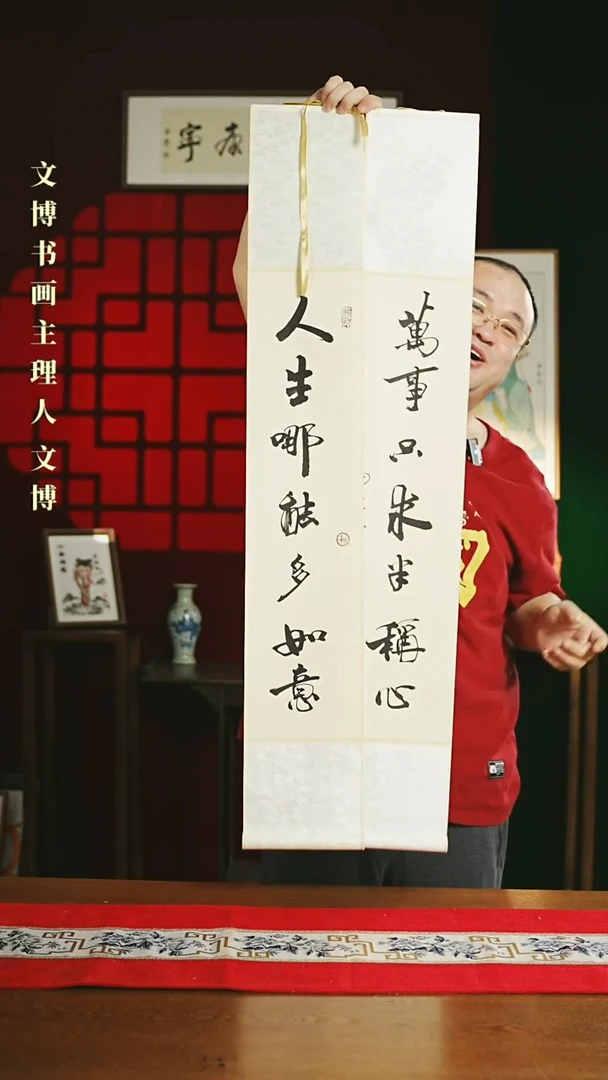 文博书画主理人文博
萬事只求半稱心
人生哪能多如意